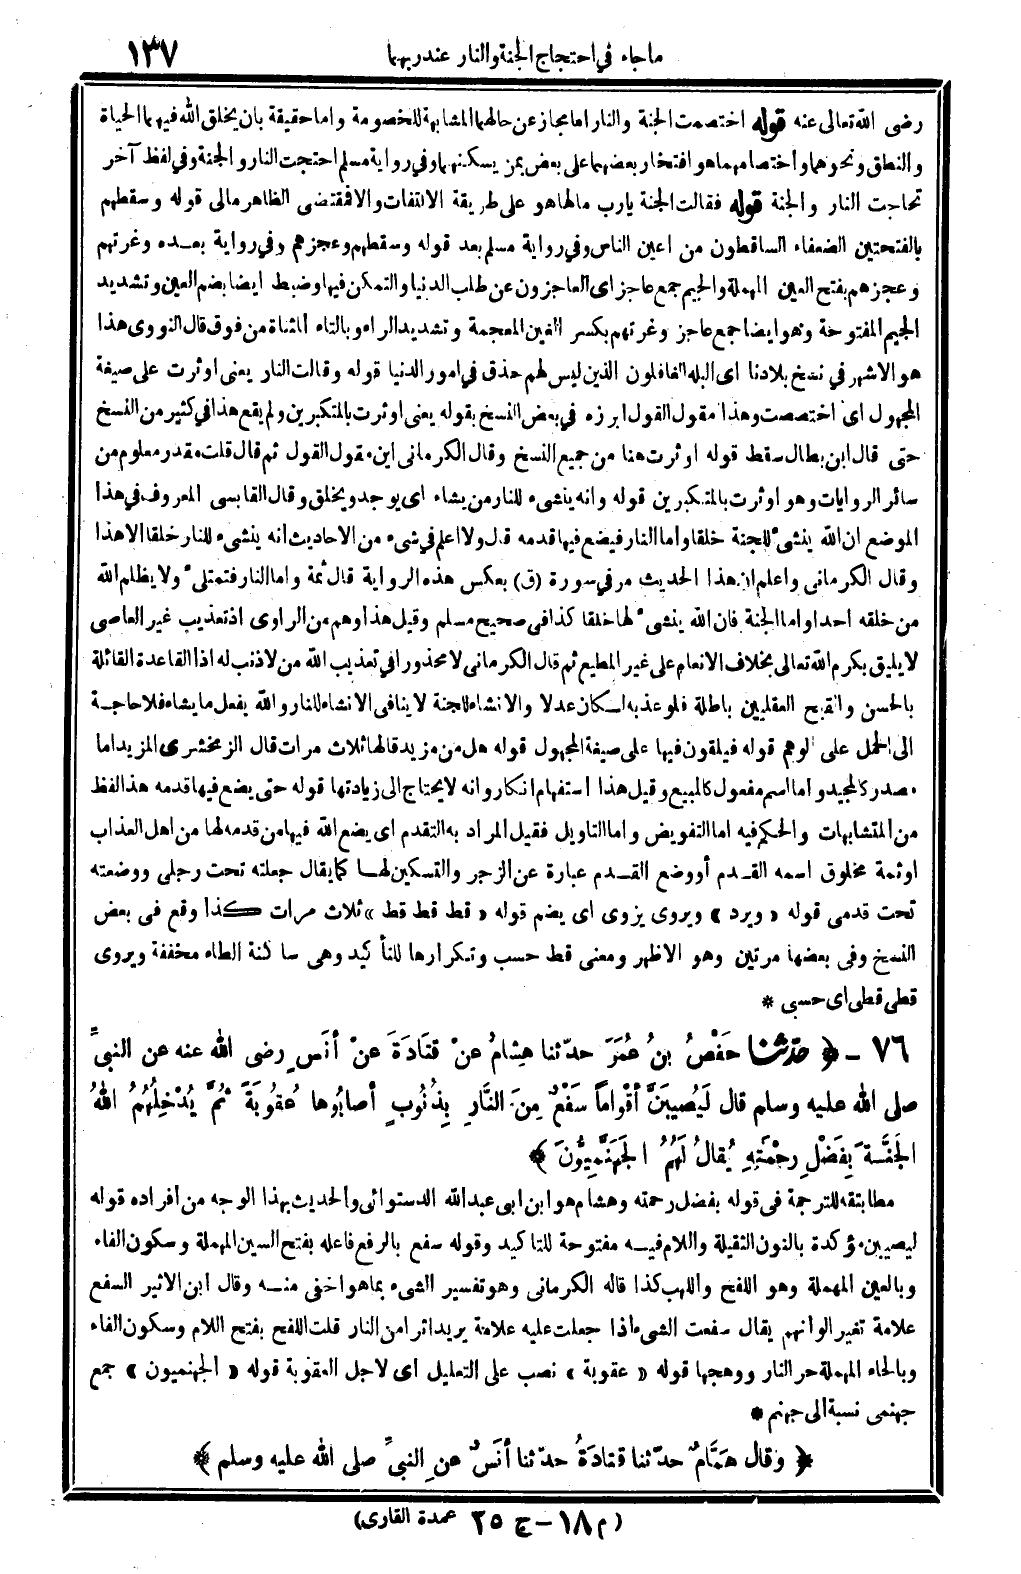 ما جاء في احتجاج الجنة والنار عند ربهما
١٣٧
رضى الله تعالى عنه قوله اختصمت الجنة والنار اما مجاز عن حالهما المشابهة للخصومة واما حقيقة بان يخلق الله فيهما الحياة
والنطق ونحوهما واختصامهما هو افتخار بعضهما على بعض بمن يسكنهما وفي رواية مسلم احتجت النار والجنة وفي لفظ آخر
تحاجت النار والجنة قوله فقالت الجنة يارب مالها هو على طريقة الالتفات والا فمقتضى الظاهر مالى قوله وسقطهم
بالفتحتين الضعفاء الساقطون من اعين الناس وفي رواية مسلم بعد قوله وسقطهم وعجزهم وفي رواية بعده وغرتهم
وعجزهم بفتح العين المهملة والجيم جمع عاجز اى العاجزون عن طلب الدنيا والتمكن فيها وضبط ايضا بضم العين وتشديد
الجيم المفتوحة وهو ايضا جمع عاجز وغرتهم بكسر الغين المعجمة وتشديد الراء وبالتاء المثناة من فوق قال النووى هذا
هو الاشهر في نسخ بلادنا اى البله الغافلون الذين ليس لهم حذق في امور الدنيا قوله وقالت النار يعنى اوثرت على صيغة
المجهول اى اختصصت وهذا مقول القول ابرزه في بعض النسخ بقوله يعنى اوثرت بالمتكبرين ولم يقع هذا في كثير من النسخ
حتى قال ابن بطال سقط قوله اوثرت هنا من جميع النسخ وقال الكرمانى اين مقول القول ثم قال قلت مقدر معلوم من
سائر الروايات وهو اوثرت بالمتكبرين قوله وانه ينشىء للنار من يشاء اى يوجد ويخلق وقال القابسى المعروف في هذا
الموضع ان الله ينشىء للجنة خلقا واما النار فيضع فيها قدمه قال ولا اعلم في شىء من الاحاديث انه ينشىء للنار خلقا الا هذا
وقال الكرمانى واعلم ان هذا الحديث مر في سورة (ق) بعكس هذه الرواية قال ثمة واما النار فتمتلىء ولا يظلم الله
من خلقه احدا واما الجنة فان الله ينشىء لها خلقا كذا فى صحيح مسلم وقيل هذا وهم من الراوى اذ تعذيب غير العاصى
لا يليق بكرم الله تعالى بخلاف الانعام على غير المطيع ثم قال الكرمانى لا محذور فى تعذيب الله من لا ذنب له اذ القاعدة القائلة
بالحسن والقبح العقليين باطلة فلو عذبه لكان عدلا والانشاء للجنة لا ينافى الانشاء للنار والله يفعل ما يشاء فلا حاجة
الى الحمل على الوهم قوله فيلقون فيها على صيغة المجهول قوله هل من مزيد قالها ثلاث مرات قال الزمخشرى المزيد اما
مصدر كالمجيد واما اسم مفعول كالمبيع وقيل هذا استفهام انكار وانه لا يحتاج الى زيادتها قوله حتى يضع فيها قدمه هذا لفظ
من المتشابهات والحكم فيه اما التفويض واما التاويل فقيل المراد به التقدم اى يضع الله فيها من قدمه لها من اهل العذاب
اوثمة مخلوق اسمه القدم أووضع القدم عبارة عن الزجر والتسكين لها كما يقال جعلته تحت رجلى ووضعته
تحت قدمى قوله « ويرد » ويروى يزوى اى يضم قوله « قط قط قط » ثلاث مرات كذا وقع فى بعض
النسخ وفى بعضها مرتين وهو الاظهر ومعنى قط حسب وتكرارها للتأكيد وهى ساكنة الطاء مخففة ويروى
قطى قطى اى حسبى *
٧٦ - ﴿ حَدَّثَنَا حَفْصُ بنُ عُمَرَ حدّثنا هِشامٌ عنْ قتَادَةَ عنْ أنَسٍ رضى الله عنه عن النبىِّ
صلى الله عليه وسلم قال لَيُصِيبَنَّ أقْواماً سَفْعٌ مِنَ النَّارِ بِذُنُوبٍ أصابُوها عُقُوبَةً ثُمَّ يُدْخِلُهُمُ اللهُ
الجَنَّةَ بِفَضْلِ رِحْمَتِهِ يُقالُ لَهُمُ الجَهَنَّمِيُّونَ ﴾
مطابقته للترجمة فى قوله بفضل رحمته وهشام هو ابن ابى عبدالله الدستوائى والحديث بهذا الوجه من أفراده قوله
ليصيبن مؤكدة بالنون الثقيلة واللام فيه مفتوحة للتاكيد وقوله سفع بالرفع فاعله بفتح السين المهملة وسكون الفاء
وبالعين المهملة وهو اللفح واللهب كذا قاله الكرمانى وهو تفسير الشىء بما هو اخفى منه وقال ابن الاثير السفع
علامة تغير الوانهم يقال سفعت الشىء اذا جعلت عليه علامة يريد اثرا من النار قلت اللفح بفتح اللام وسكون الفاء
وبالحاء المهملة حر النار ووهجها قوله « عقوبة » نصب على التعليل اى لاجل العقوبة قوله « الجهنميون » جمع
جهنمى نسبة الى جهنم *
﴿ وقال هَمَّامٌ حدّثنا قتادَةُ حدّثنا أنَسٌ عنِ النبىِّ صلى الله عليه وسلم ﴾
(م ١٨ - ج ٢٥ عمدة القارى)